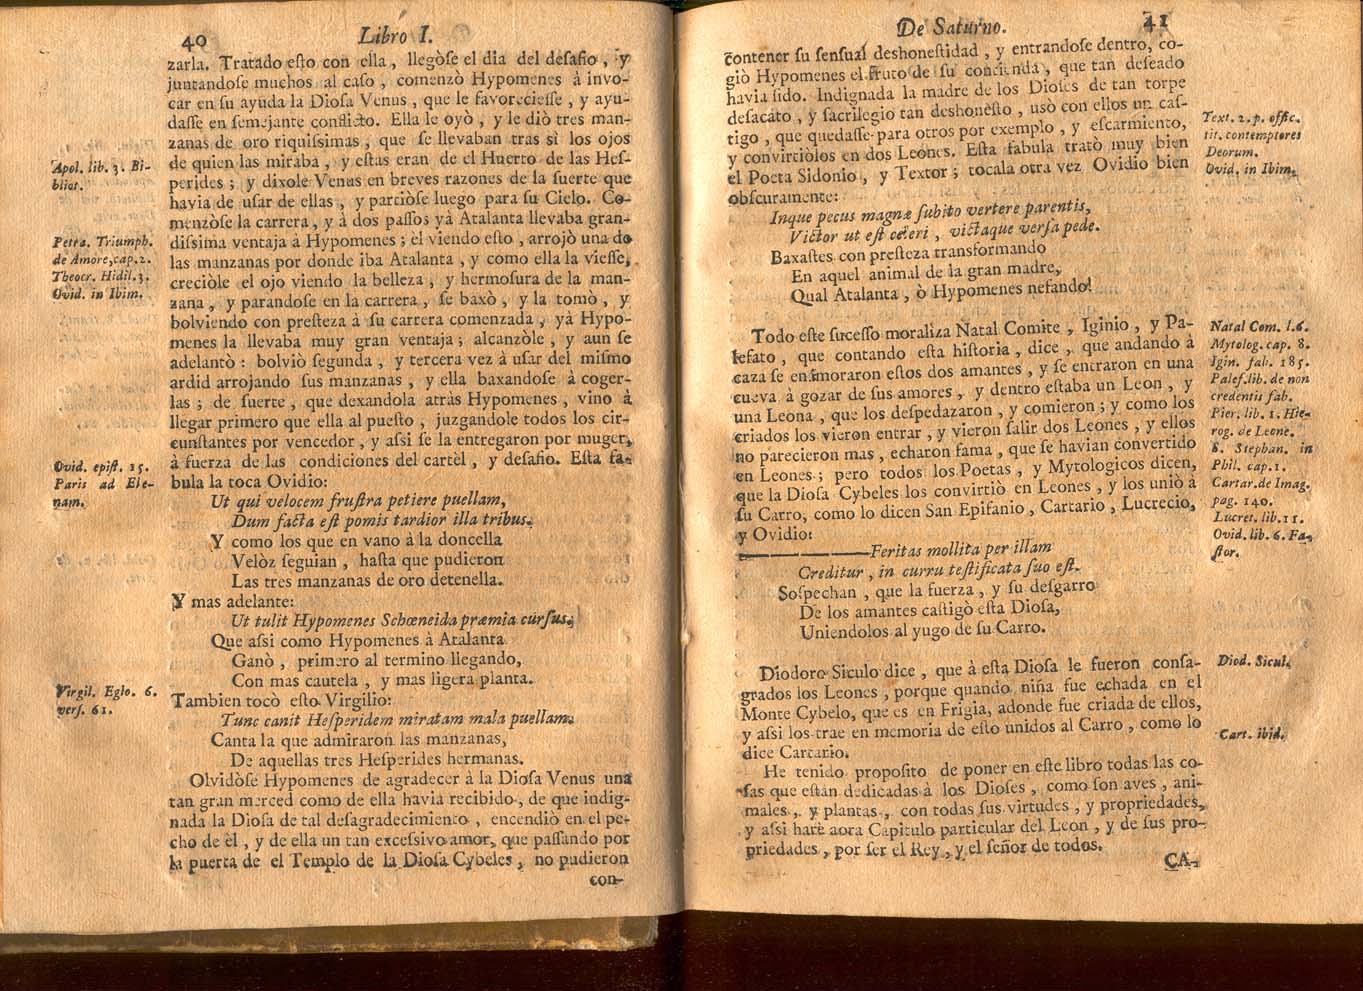 40 Libro I.
zarla. Tratado esto con ella, llegòse el dia del desafio, y
juntandose muchos al caso, comenzò Hypomenes à invo-
car en su ayuda la Diosa Venus, que le favoreciesse, y ayu-
dasse en semejante conflicto. Ella le oyò, y le diò tres man-
zanas de oro riquissimas, que se llevaban tras sì los ojos
de quien las miraba, y estas eran de el Huerto de las Hes-
perides; y dixole Venus en breves razones de la suerte que
havia de usar de ellas, y partiòse luego para su Cielo. Co-
menzòse la carrera, y à dos passos yà Atalanta llevaba gran-
dissima ventaja à Hypomenes; èl viendo esto, arrojò una de
las manzanas por donde iba Atalanta, y como ella la viesse,
creciòle el ojo viendo la belleza, y hermosura de la man-
zana, y parandose en la carrera, se baxò, y la tomò, y
bolviendo con presteza à su carrera comenzada, yà Hypo-
menes la llevaba muy gran ventaja; alcanzòle, y aun se
adelantò: bolviò segunda, y tercera vez à usar del mismo
ardid arrojando sus manzanas, y ella baxandose à coger-
las; de suerte, que dexandola atràs Hypomenes, vino à
llegar primero que ella al puesto, juzgandole todos los cir-
cunstantes por vencedor, y assi se la entregaron por muger,
à fuerza de las condiciones del cartèl, y desafio. Esta fa-
bula la toca Ovidio:
Ut qui velocem frustra petiere puellam,
Dum facta est pomis tardior illa tribus.
Y como los que en vano à la doncella
Velòz seguian, hasta que pudieron
Las tres manzanas de oro detenella.
Y mas adelante:
Ut tulit Hypomenes Schœneida præmia cursus.
Que assi como Hypomenes à Atalanta
Ganò, primero al termino llegando,
Con mas cautela, y mas ligera planta.
Tambien tocò esto Virgilio:
Tunc canit Hesperidem miratam mala puellam.
Canta la que admiraron las manzanas,
De aquellas tres Hesperides hermanas.
Olvidòse Hypomenes de agradecer à la Diosa Venus una
tan gran merced como de ella havia recibido, de que indig-
nada la Diosa de tal desagradecimiento, encendiò en el pe-
cho de èl, y de ella un tan excessivo amor, que passando por
la puerta de el Templo de la Diosa Cybeles, no pudieron
con-
Apol. lib. 3. Bi-
bliot.
Petra. Triumph.
de Amore, cap. 2.
Theocr. Hidil. 3.
Ovid. in Ibim.
Ovid. epist. 15.
Paris ad Ele-
nam.
Virgil. Eglo. 6.
vers. 61.
De Saturno. 41
contener su sensual deshonestidad, y entrandose dentro, co-
giò Hypomenes el fruto de su contienda, que tan deseado
havia sido. Indignada la madre de los Dioses de tan torpe
desacato, y sacrilegio tan deshonèsto, usò con ellos un cas-
tigo, que quedasse para otros por exemplo, y escarmiento,
y convirtiòlos en dos Leones. Esta fabula tratò muy bien
el Poeta Sidonio, y Textor; tocala otra vez Ovidio bien
obscuramente:
Inque pecus magnæ subito vertere parentis,
Victor ut est celeri, victaque versa pede.
Baxastes con presteza transformando
En aquel animal de la gran madre,
Qual Atalanta, ò Hypomenes nefando!
Todo este sucesso moraliza Natal Comite, Iginio, y Pa-
lefato, que contando esta historia, dice, que andando à
caza se enamoraron estos dos amantes, y se entraron en una
cueva à gozar de sus amores, y dentro estaba un Leon, y
una Leona, que los despedazaron, y comieron; y como los
criados los vieron entrar, y vieron salir dos Leones, y ellos
no parecieron mas, echaron fama, que se havian convertido
en Leones; pero todos los Poetas, y Mytologicos dicen,
que la Diosa Cybeles los convirtiò en Leones, y los uniò à
su Carro, como lo dicen San Epifanio, Cartario, Lucrecio,
y Ovidio:
——Feritas mollita per illam
Creditur, in curru testificata suo est.
Sospechan, que la fuerza, y su desgarro
De los amantes castigò esta Diosa,
Uniendolos al yugo de su Carro.
Diodoro Siculo dice, que à esta Diosa le fueron consa-
grados los Leones, porque quando niña fue echada en el
Monte Cybelo, que es en Frigia, adonde fue criada de ellos,
y assi los trae en memoria de esto unidos al Carro, como lo
dice Cartario.
He tenido proposito de poner en este libro todas las co-
sas que estàn dedicadas à los Dioses, como son aves, ani-
males, y plantas, con todas sus virtudes, y propriedades,
y assi harè aora Capitulo particular del Leon, y de sus pro-
priedades, por ser el Rey, y el señor de todos.
CA-
Text. 2. p. offic.
tit. contemptores
Deorum.
Ovid. in Ibim.
Natal Com. l. 6.
Mytolog. cap. 8.
Igin. fab. 185.
Palef. lib. de non
credentis fab.
Pier. lib. 1. Hie-
rog. de Leone.
8. Stephan. in
Phil. cap. 1.
Cartar. de Imag.
pag. 140.
Lucret. lib. 11.
Ovid. lib. 6. Fa-
stor.
Diod. Sicul.
Cart. ibid.